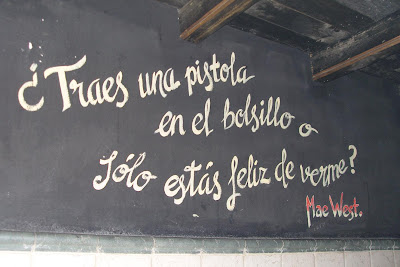 ¿Traes una pistola
en el bolsillo o
sólo estás feliz de verme?
Mae West.